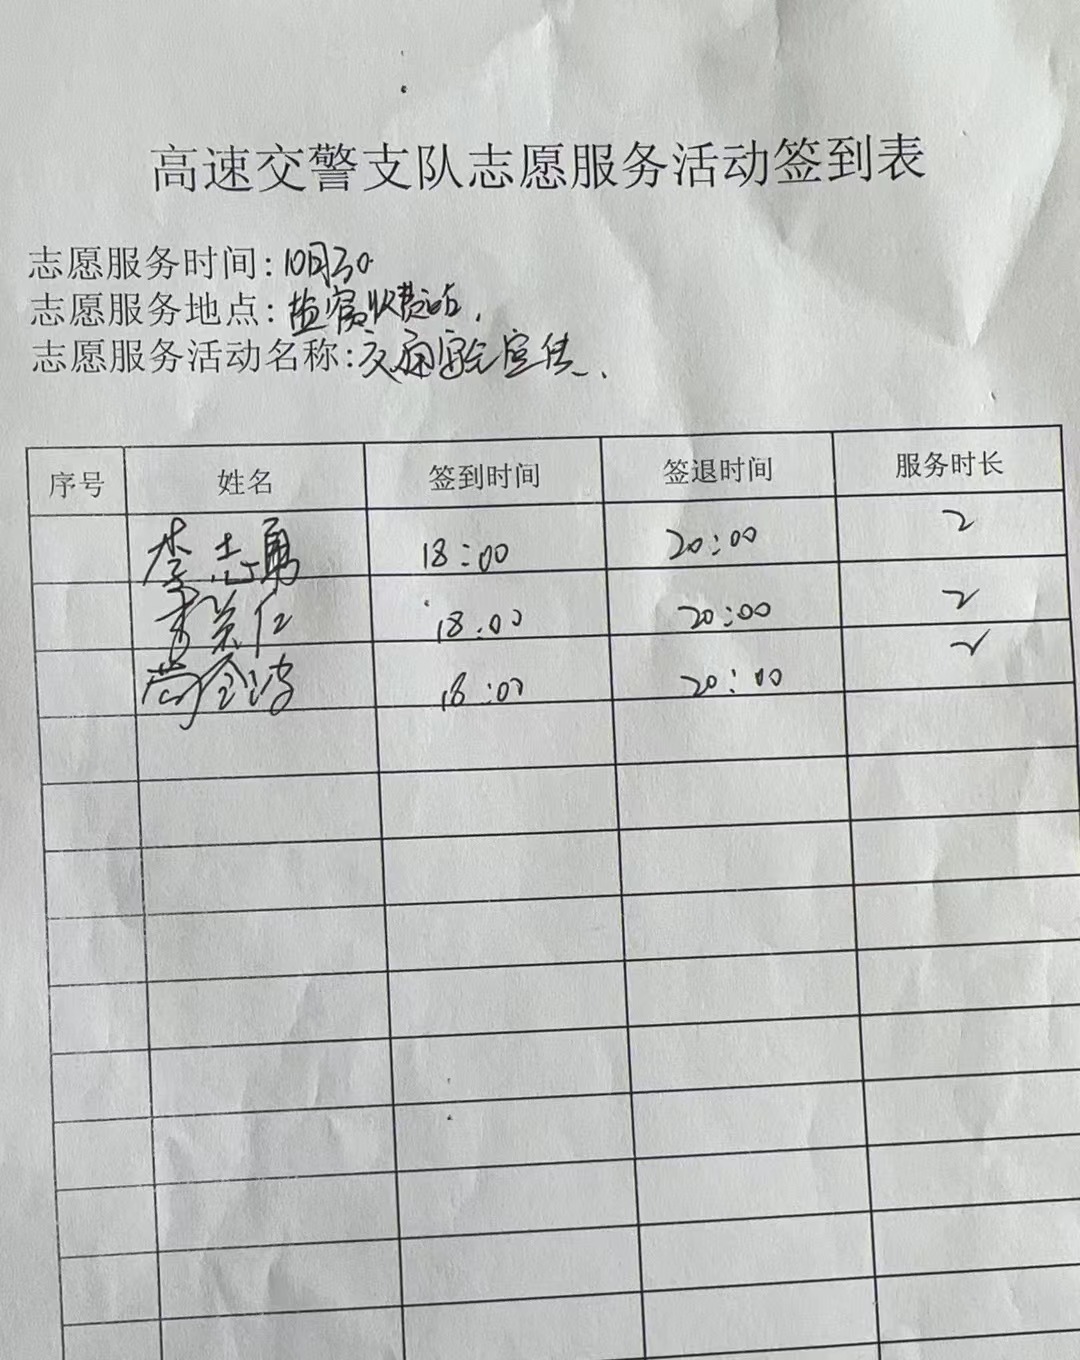 高速交警支队志愿服务活动签到表
志愿服务时间:10月30
志愿服务地点:盐窝收费站.
志愿服务活动名称:交通安全宣传、
序号 姓名 签到时间 签退时间 服务时长
李志勇 18:00 20:00 2
18:00 20:00 2
18:00 20:00 2